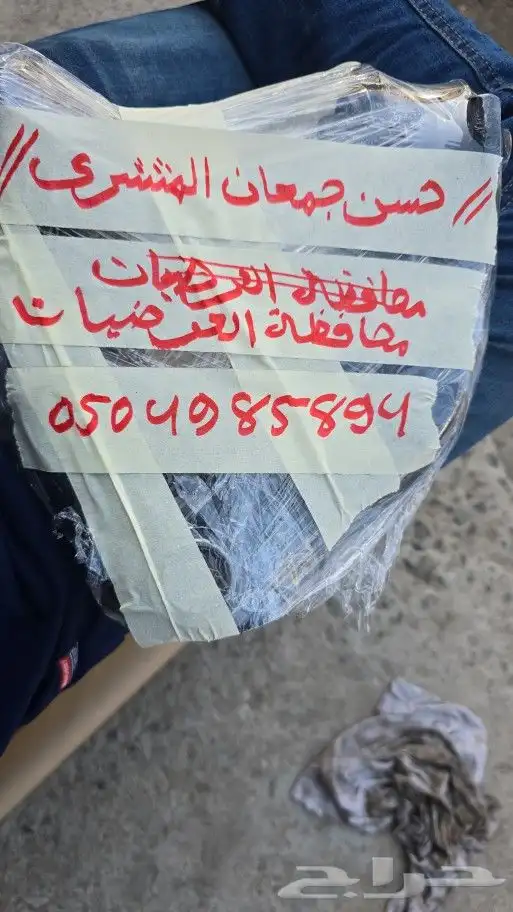 // حسن جمعان المنتشري //
محافظة العرضيات
محافظة العرضيات
0504985894
حراج